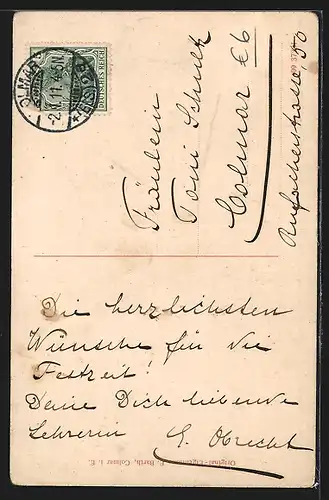 COLMAR
2.1.11.4-5N.
(ELS.)
DEUTSCHES REICH
Fräulein
Toni Schultz
Colmar i. E.
Rufacherstrasse 50
Die herzlichsten
Wünsche für die
Festzeit!
Deine Dich liebende
Lehrerin G. Obrecht
Original-Eigentum F. Barth, Colmar i. E.